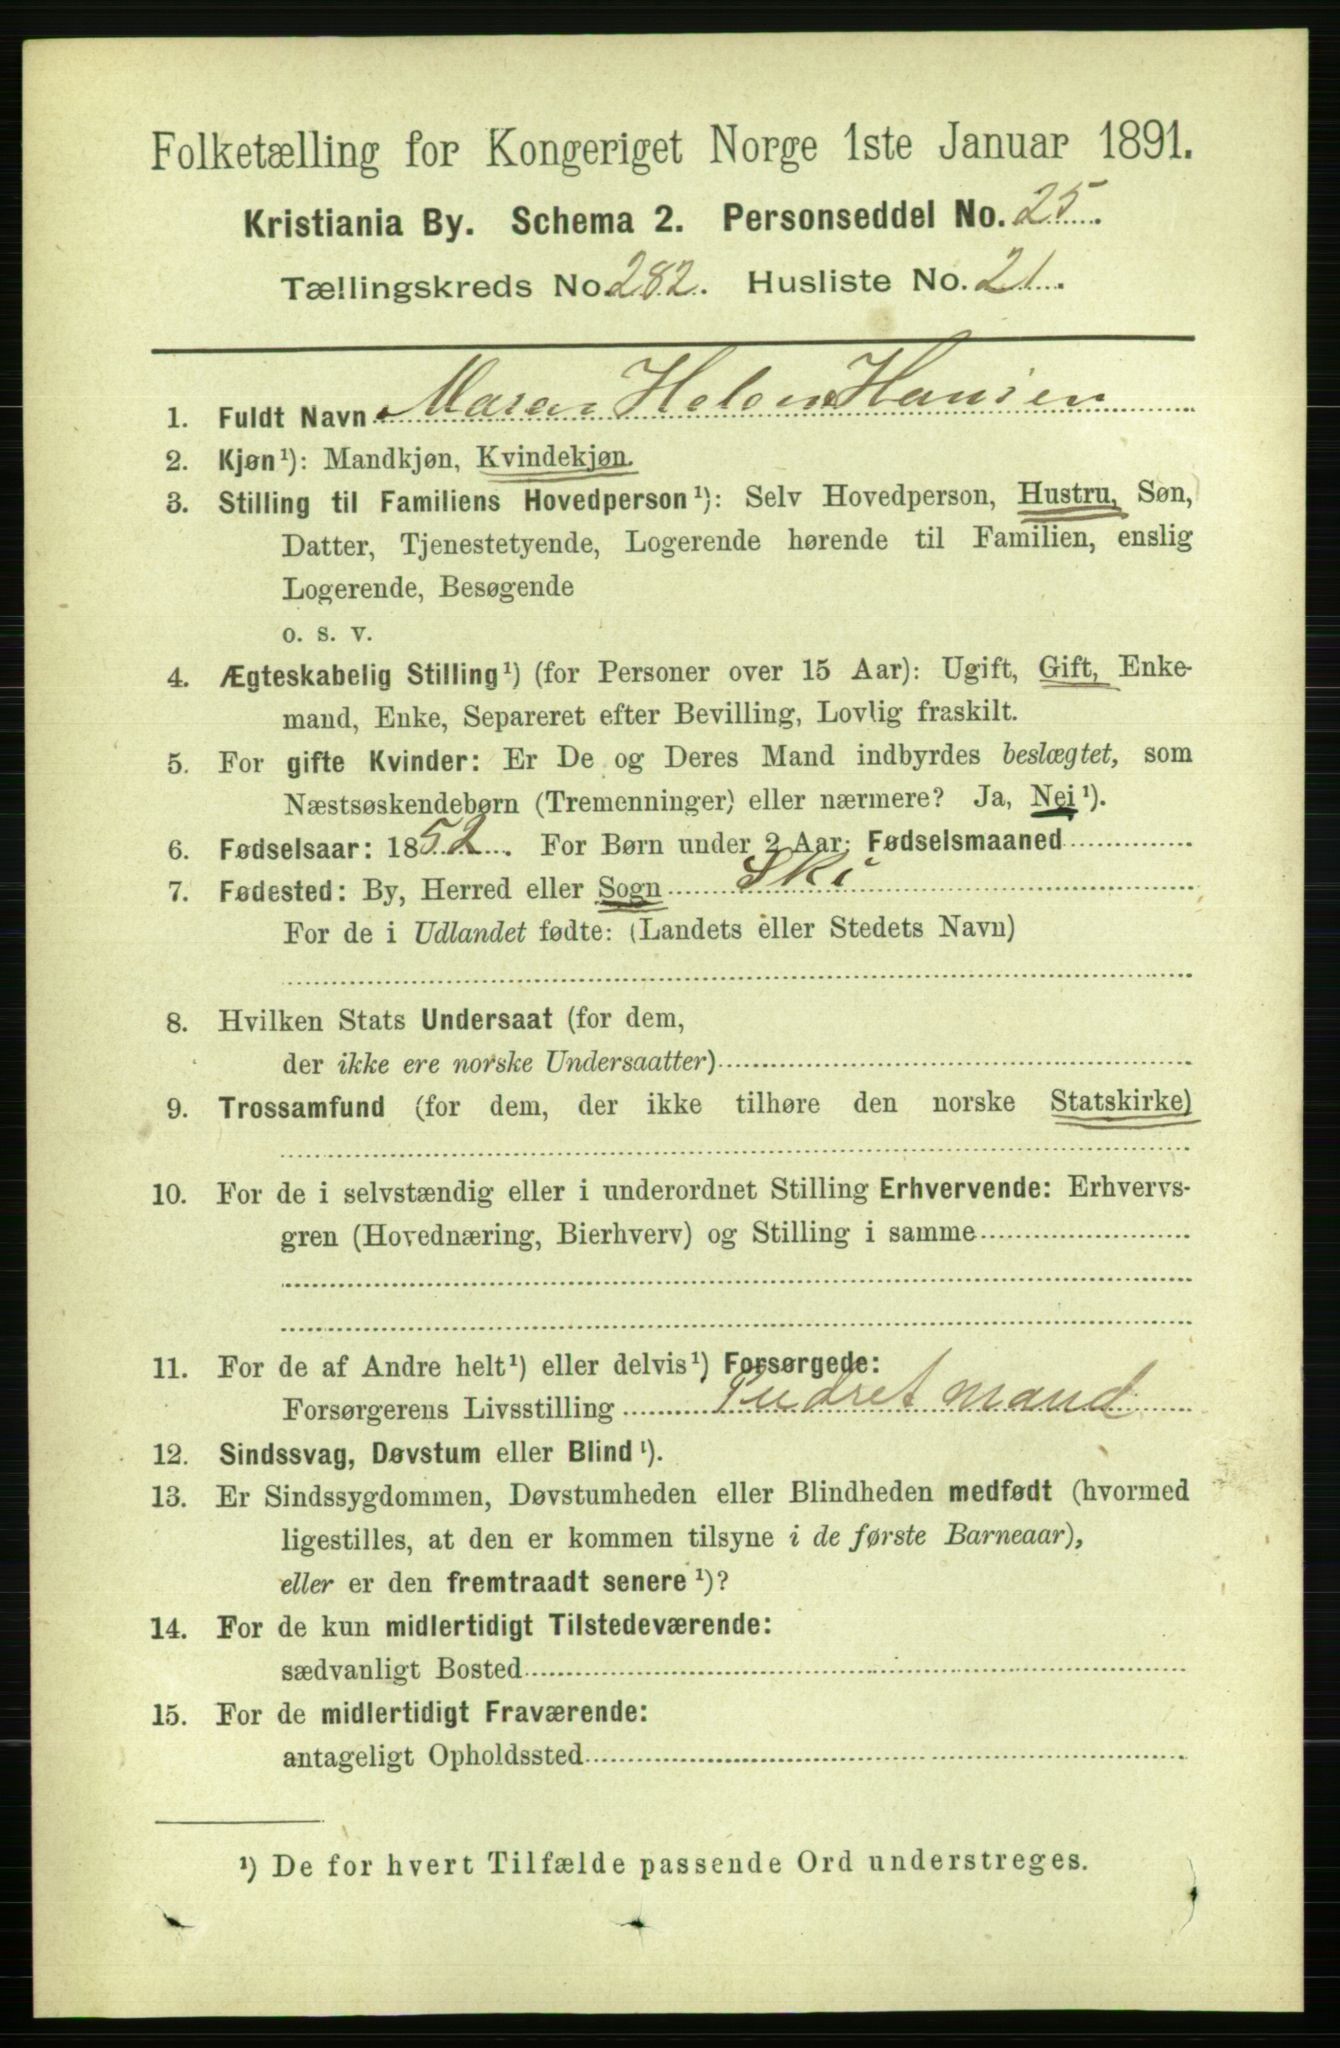 Folketælling for Kongeriget Norge 1ste Januar 1891.
Kristiania By. Schema 2. Personseddel No. 25.
Tællingskreds No. 282. Husliste No. 21.
1. Fuldt Navn Maren Helene Hansen
2. Kjøn¹): Mandkjøn, Kvindekjøn.
3. Stilling til Familiens Hovedperson¹): Selv Hovedperson, Hustru, Søn,
Datter, Tjenestetyende, Logerende hørende til Familien, enslig
Logerende, Besøgende
o. s. v.
4. Ægteskabelig Stilling¹) (for Personer over 15 Aar): Ugift, Gift, Enke-
mand, Enke, Separeret efter Bevilling, Lovlig fraskilt.
5. For gifte Kvinder: Er De og Deres Mand indbyrdes beslægtet, som
Næstsøskendebørn (Tremenninger) eller nærmere? Ja, Nei¹).
6. Fødselsaar: 1852. For Børn under 2 Aar: Fødselsmaaned
7. Fødested: By, Herred eller Sogn Ski
For de i Udlandet fødte: (Landets eller Stedets Navn)
8. Hvilken Stats Undersaat (for dem,
der ikke ere norske Undersaatter)
9. Trossamfund (for dem, der ikke tilhøre den norske Statskirke)
10. For de i selvstændig eller i underordnet Stilling Erhvervende: Erhvervs-
gren (Hovednæring, Bierhverv) og Stilling i samme
11. For de af Andre helt¹) eller delvis¹) Forsørgede:
Forsørgerens Livsstilling Pudretmand
12. Sindssvag, Døvstum eller Blind¹).
13. Er Sindssygdommen, Døvstumheden eller Blindheden medfødt (hvormed
ligestilles, at den er kommen tilsyne i de første Barneaar),
eller er den fremtraadt senere¹)?
14. For de kun midlertidigt Tilstedeværende:
sædvanligt Bosted
15. For de midlertidigt Fraværende:
antageligt Opholdssted
¹) De for hvert Tilfælde passende Ord understreges.